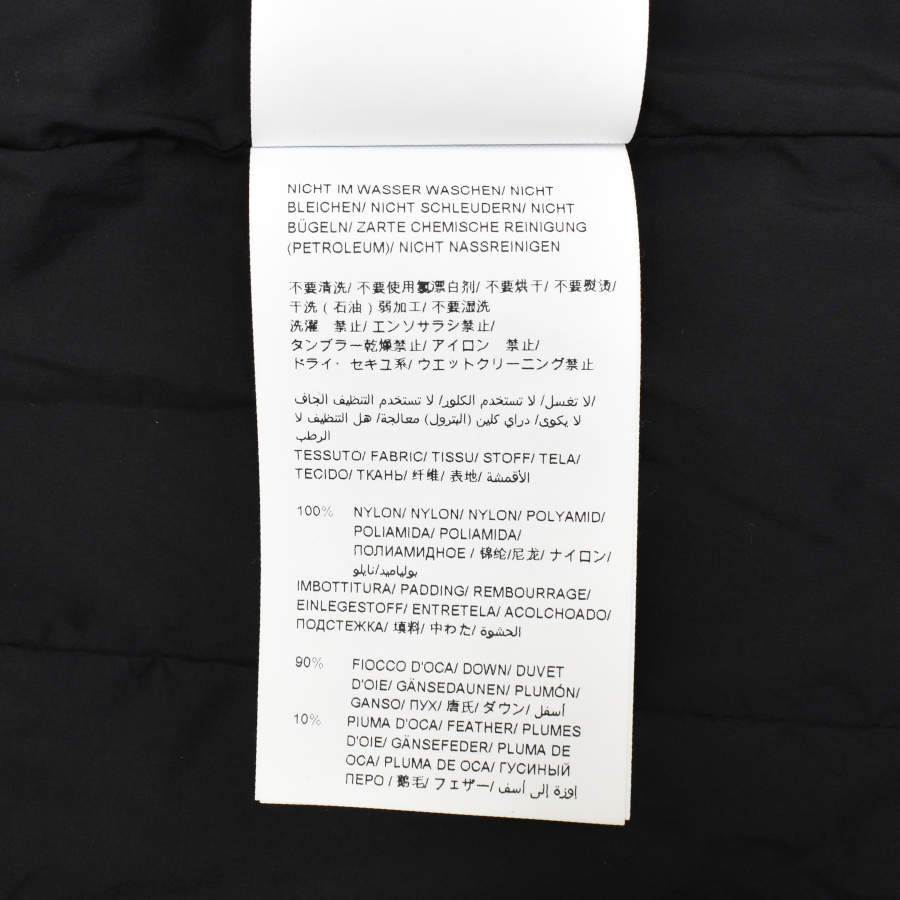 NICHT IM WASSER WASCHEN/ NICHT
BLEICHEN/ NICHT SCHLEUDERN/ NICHT
BÜGELN/ ZARTE CHEMISCHE REINIGUNG
(PETROLEUM)/ NICHT NASSREINIGEN
不要清洗/ 不要使用氯漂白剂/ 不要烘干/ 不要熨烫/
干洗 ( 石油 ) 弱加工/ 不要湿洗
洗濯　禁止/ エンソサラシ禁止/
タンブラー乾燥禁止/ アイロン　禁止/
ドライ・セキユ系/ ウエットクリーニング禁止
لا تغسل/ لا تستخدم الكلور/ لا تستخدم التنظيف الجاف/
لا يكوى/ دراي كلين (البترول) معالجة/ هل التنظيف لا
الرطب
TESSUTO/ FABRIC/ TISSU/ STOFF/ TELA/
TECIDO/ ТКАНЬ/ 纤维/ 表地/ الأقمشة
100% NYLON/ NYLON/ NYLON/ POLYAMID/
POLIAMIDA/ POLIAMIDA/
ПОЛИАМИДНОЕ / 锦纶/尼龙/ ナイロン/
بولياميد/نايلو
IMBOTTITURA/ PADDING/ REMBOURRAGE/
EINLEGESTOFF/ ENTRETELA/ ACOLCHOADO/
ПОДСТЕЖКА/ 填料/ 中わた/ الحشوة
90% FIOCCO D'OCA/ DOWN/ DUVET
D'OIE/ GÄNSEDAUNEN/ PLUMÓN/
GANSO/ ПУХ/ 唐氏/ ダウン/ أسفل
10% PIUMA D'OCA/ FEATHER/ PLUMES
D'OIE/ GÄNSEFEDER/ PLUMA DE
OCA/ PLUMA DE OCA/ ГУСИНЫЙ
ПЕРО / 鹅毛/ フェザー/ إوزة إلى أسف